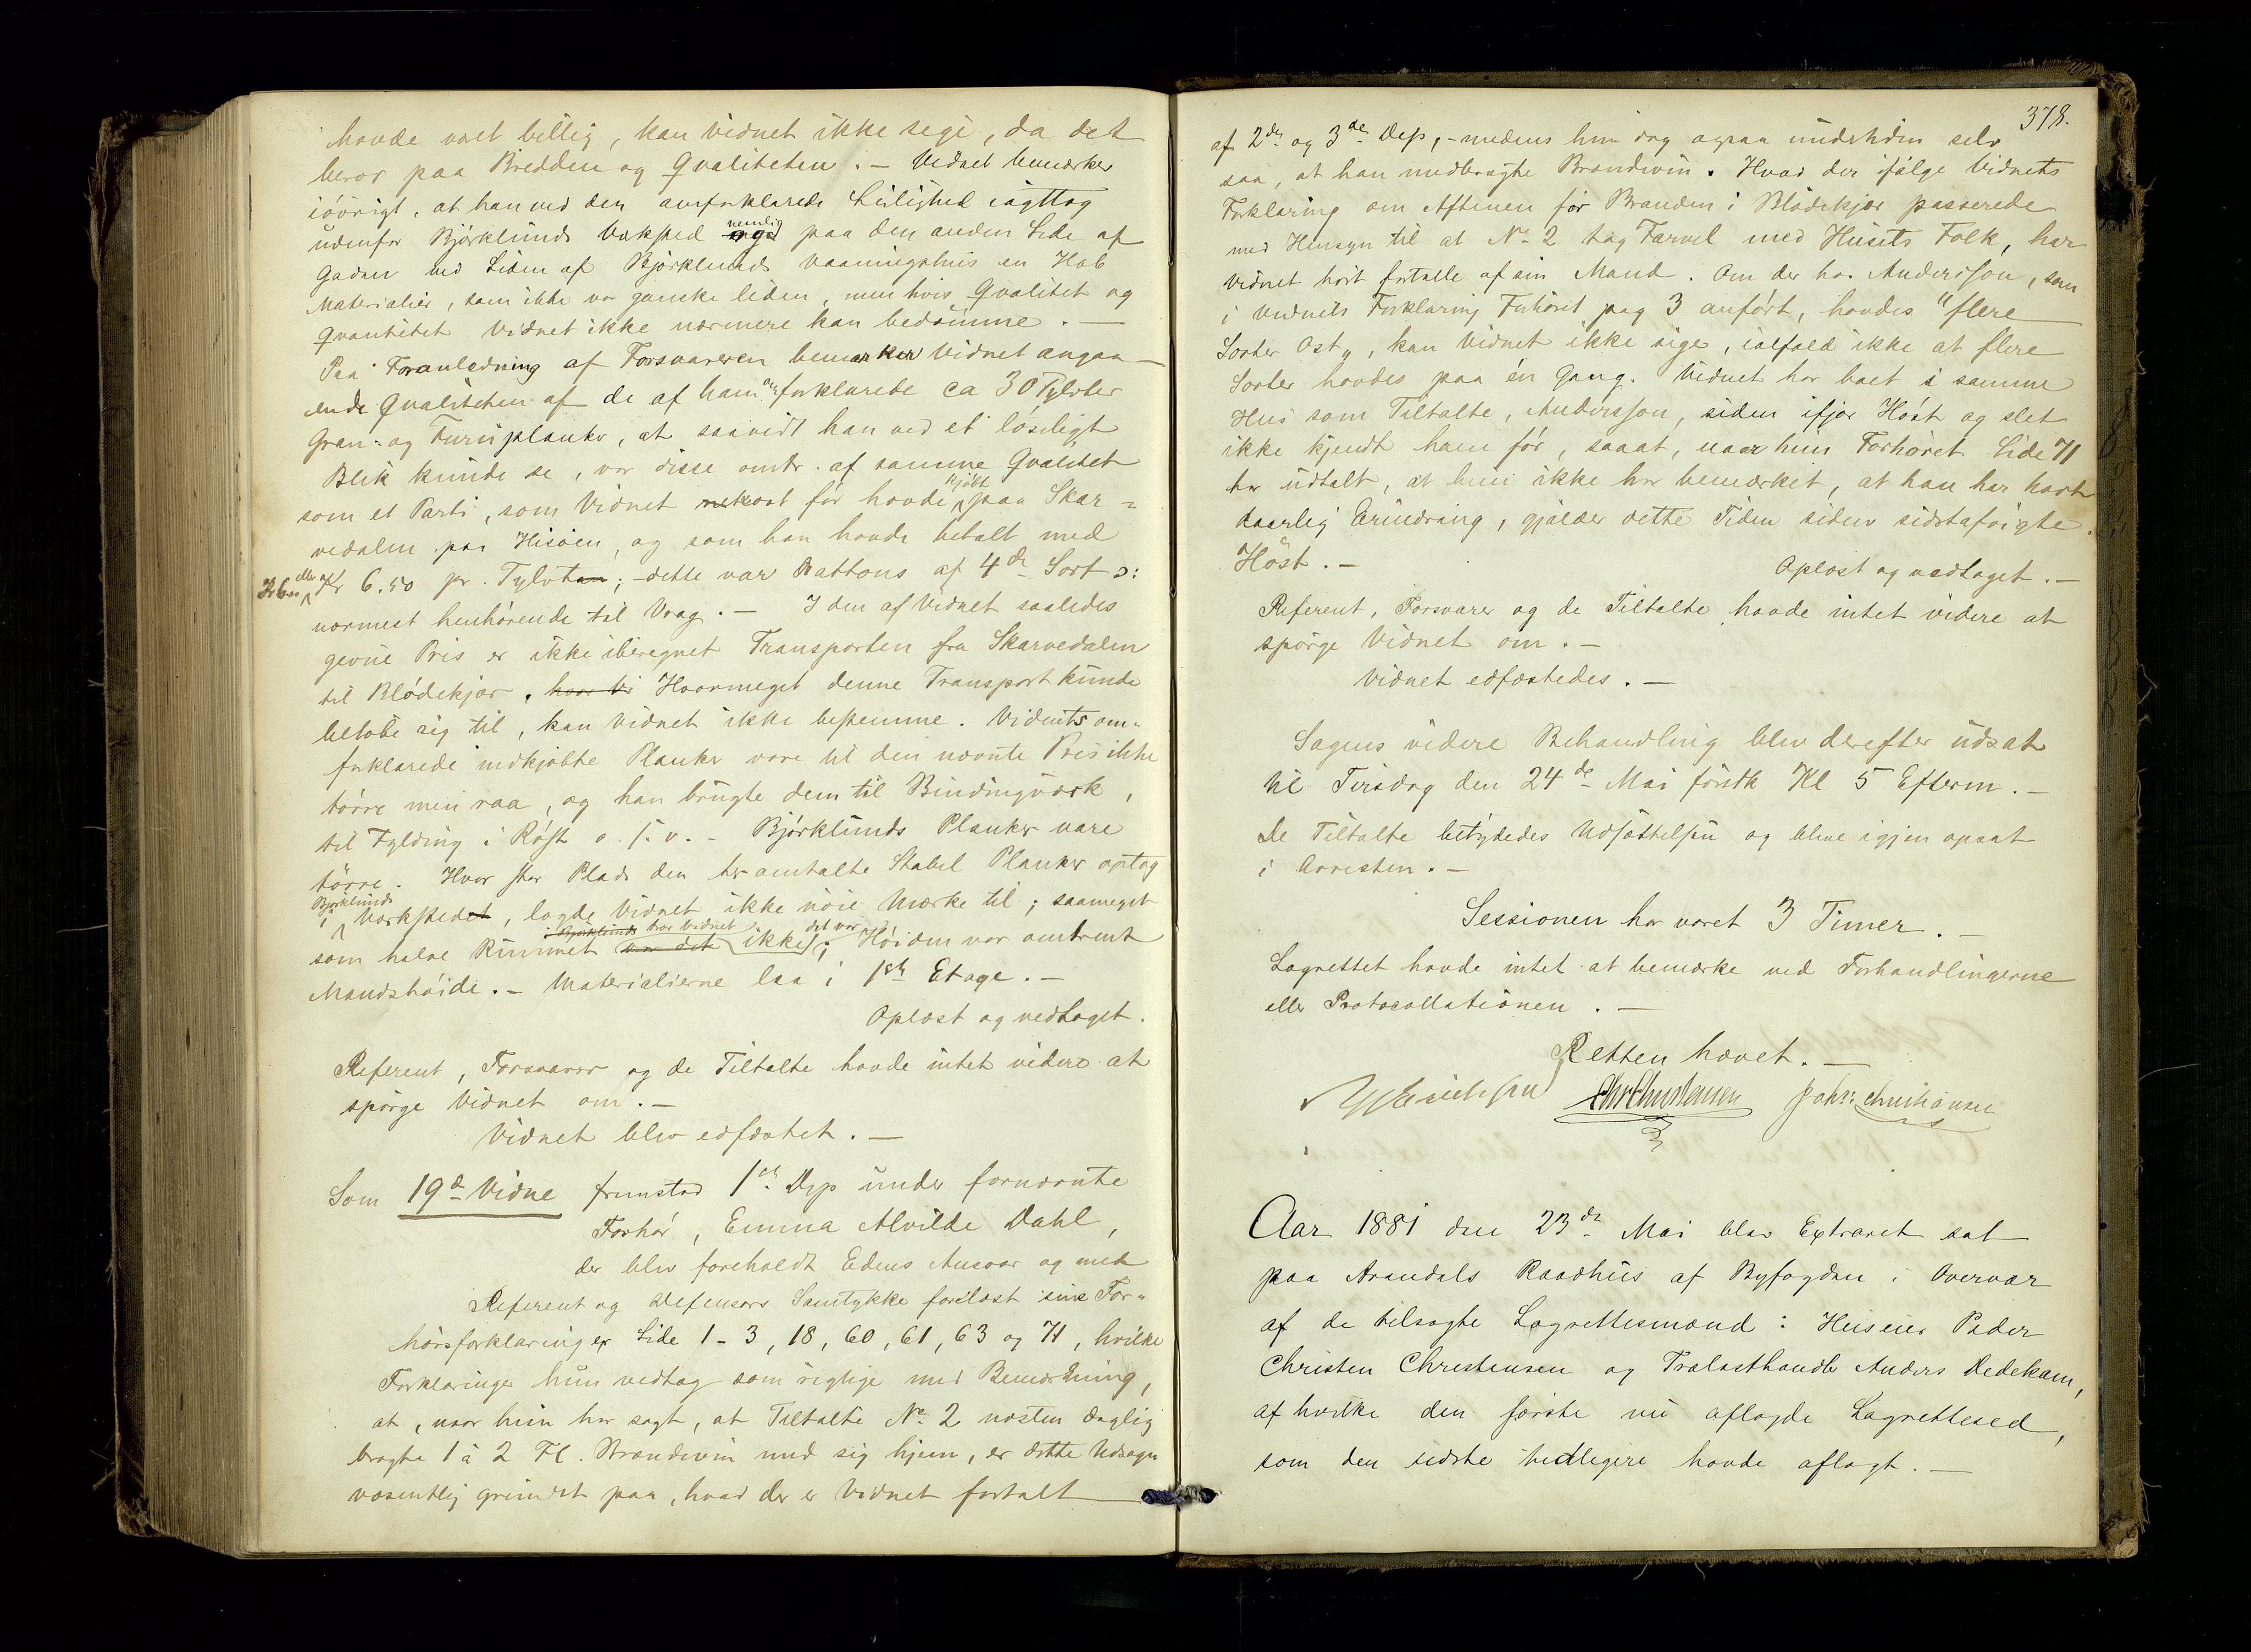 havde været billig, kan Vidnet ikke sige, da det
beror paa Bredden og Qvaliteten. – Vidnet bemærker
iøvrigt, at han ved den omforklarede Leilighed iagttog
udenfor Bjørklunds Værksted nemlig paa den anden Side af
Gaden ved Siden af Bjørklunds Vaaningshus en Hob
Materialier, som ikke var ganske liden, men hvis Qvalitet og
Qvantitet Vidnet ikke nærmere kan bedømme. –
Paa Foranledning af Forsvareren bemærker Vidnet angaa-
ende Qvaliteten af de af ham omforklarede ca 30 Tylvter
Gran- og Furuplanker, at saavidt han ved et løseligt
Blik kunde se, var disse omtr. af samme Qvalitet
som et Parti, som Vidnet før havde kjøbt paa Skar-
vedalen paa Hisøen, og som han havde betalt med
Kr 6 eller Kr 6.50 pr. Tylvt; – dette var Battens af 4de Sort ɔ:
nærmest henhørende til Vrag. – I den af Vidnet saaledes
givne Pris er ikke iberegnet Transporten fra Skarvedalen
til Blødekjær. Hvormeget denne Transport kunde
beløbe sig til, kan Vidnet ikke bestemme. Vidnets om-
forklarede indkjøbte Planker vare til den nævnte Pris ikke
tørre men raa, og han brugte dem til Bindingsværk,
til Fylding i Røst o. s. v. – Bjørklunds Planker vare
tørre. Hvor stor Plads den her omtalte Stabel Planker optog
i Bjørklunds Værksted, lagde Vidnet ikke nøie Mærke til; saameget
som halve Rummet tror Vidnet ikke det var; Høiden var omtrent
Mandshøide. – Materialierne laa i 1ste Etage. –
Oplæst og vedtaget.
Referent, Forsvarer og de Tiltalte havde intet videre at
spørge Vidnet om. –
Vidnet blev edfæstet. –
Som 19de Vidne fremstod 1ste Dep under fornævnte
Forhør, Emma Alvilde Dahl,
der blev foreholdt Edens Ansvar og med
Referent og Defensors Samtykke forelæst sine For-
hørsforklaringer Side 1-3, 18, 60, 61, 63 og 71, hvilke
Forklaringer hun vedtog som rigtige med Bemærkning,
at, naar hun har sagt, at Tiltalte No 2 næsten daglig
bragte 1 à 2 Fl. Brændevin med sig hjem, er dette Udsagn
væsentlig grundet paa, hvad der er Vidnet fortalt
378.
af 2den og 3die Dep, – medens hun dog ogsaa undertiden selv
saa, at han medbragte Brændevin. Hvad der ifølge Vidnets
Forklaring om Aftenen før Branden i Blødekjær passerede
med Hensyn til at No 2 tog Farvel med Husets Folk, har
Vidnet hørt fortælle af sin Mand. Om der hos Andersson, som
i Vidnets Forklaring Forhøret pag 3 anført, havdes "flere
Sorter Ost", kan Vidnet ikke sige, ialfald ikke at flere
Sorter havdes paa én Gang. Vidnet har boet i samme
Hus som Tiltalte, Andersson, siden ifjor Høst og slet
ikke kjendt ham før, saaat, naar hun Forhøret Side 71
har udtalt, at hun ikke har bemærket, at han har havt
daarlig Erindring, gjælder dette Tiden siden sidstafvigte
Høst. –
Oplæst og vedtaget. –
Referent, Forsvarer og de Tiltalte havde intet videre at
spørge Vidnet om. –
Vidnet edfæstedes. –
Sagens videre Behandling blev derefter udsat
til Tirsdag den 24de Mai førstk Kl 5 Efterm. –
De Tiltalte betydedes Udsættelsen og bleve igjen opsat
i Arresten. –
Sessionen har varet 3 Timer. –
Lagrettet havde intet at bemærke ved Forhandlingerne
eller Protocollationen. –
Retten hævet. –
Chr Christensen Johs: Christiansen
Aar 1881 den 23de Mai blev Extraret sat
paa Arendals Raadhus af Byfogden i Overvær
af de tilsagte Lagrettesmænd: Huseier Peder
Christen Christensen og Trælasthandler Anders Dedekam,
af hvilke den første nu aflagde Lagrettesed,
som den sidste tidligere havde aflagt. –